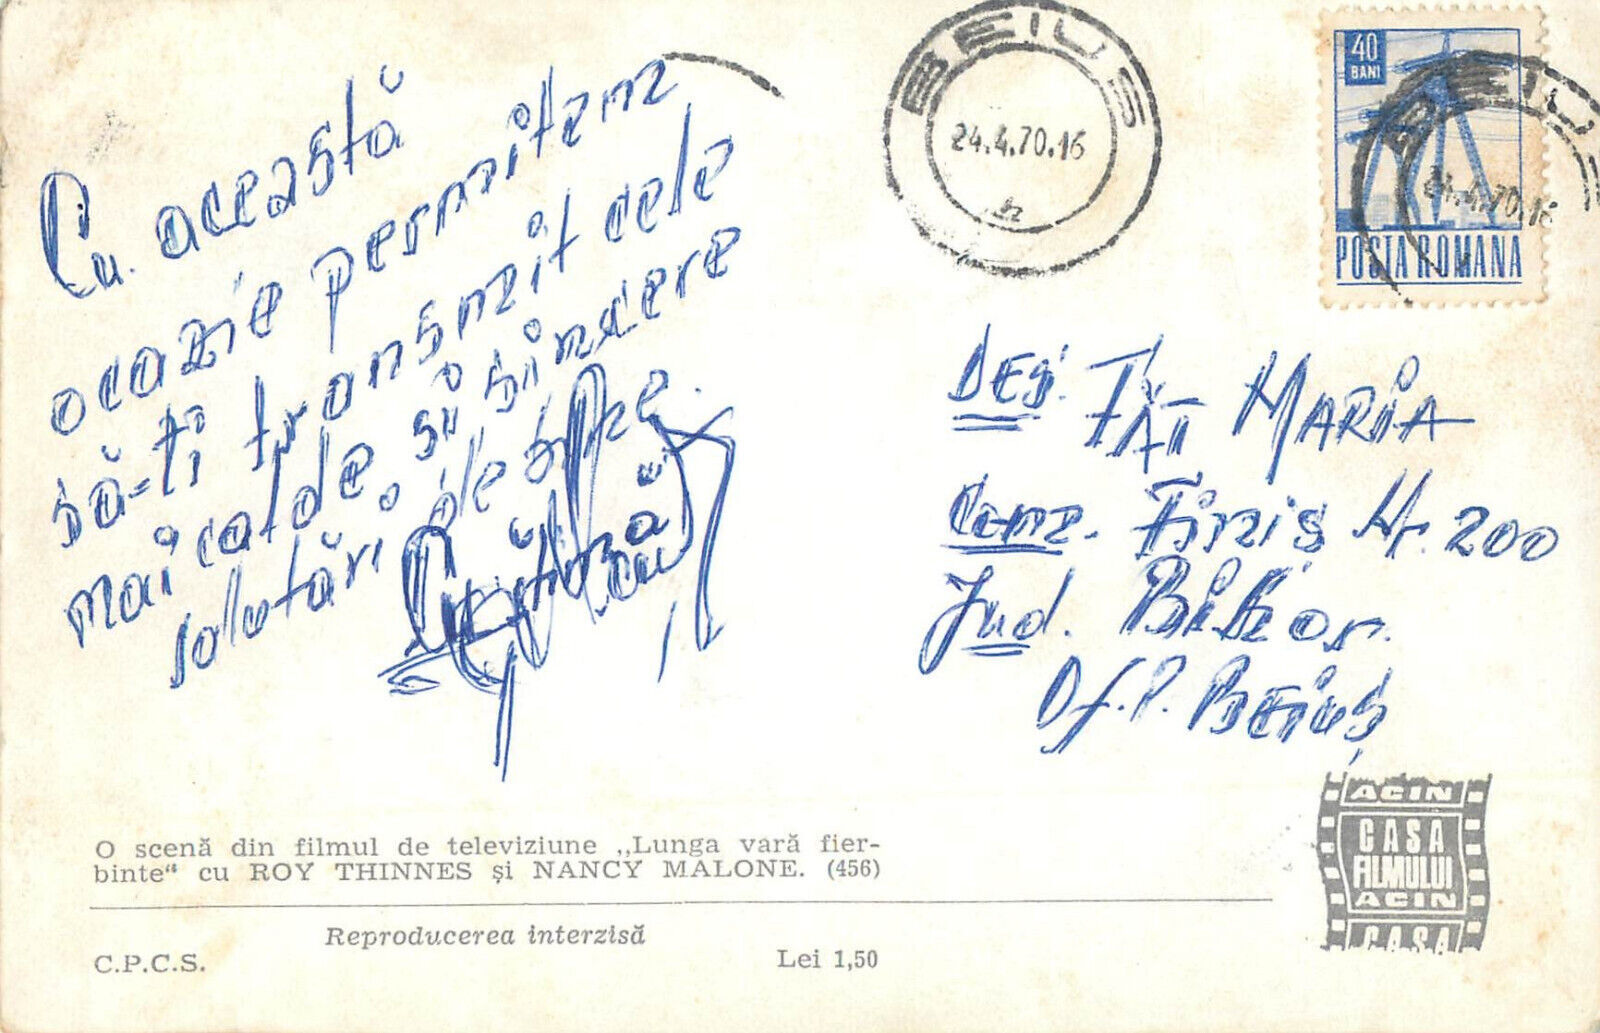 Cu această
ocazie permitem
să-ți transmit cele
mai calde și sincere
salutări de bine.
cu
BEIUȘ
24.4.70.16
40
BANI
POSTA ROMANA
BEIUȘ
24.4.70.16
DES. FĂT MARIA
Com. Finiș Nr. 200
Jud. Bihor.
Of. P. BEIUȘ
O scenă din filmul de televiziune „Lunga vară fier-
binte“ cu ROY THINNES și NANCY MALONE. (456)
Reproducerea interzisă
C.P.C.S.
Lei 1,50
ACIN
CASA
FILMULUI
ACIN
CASA